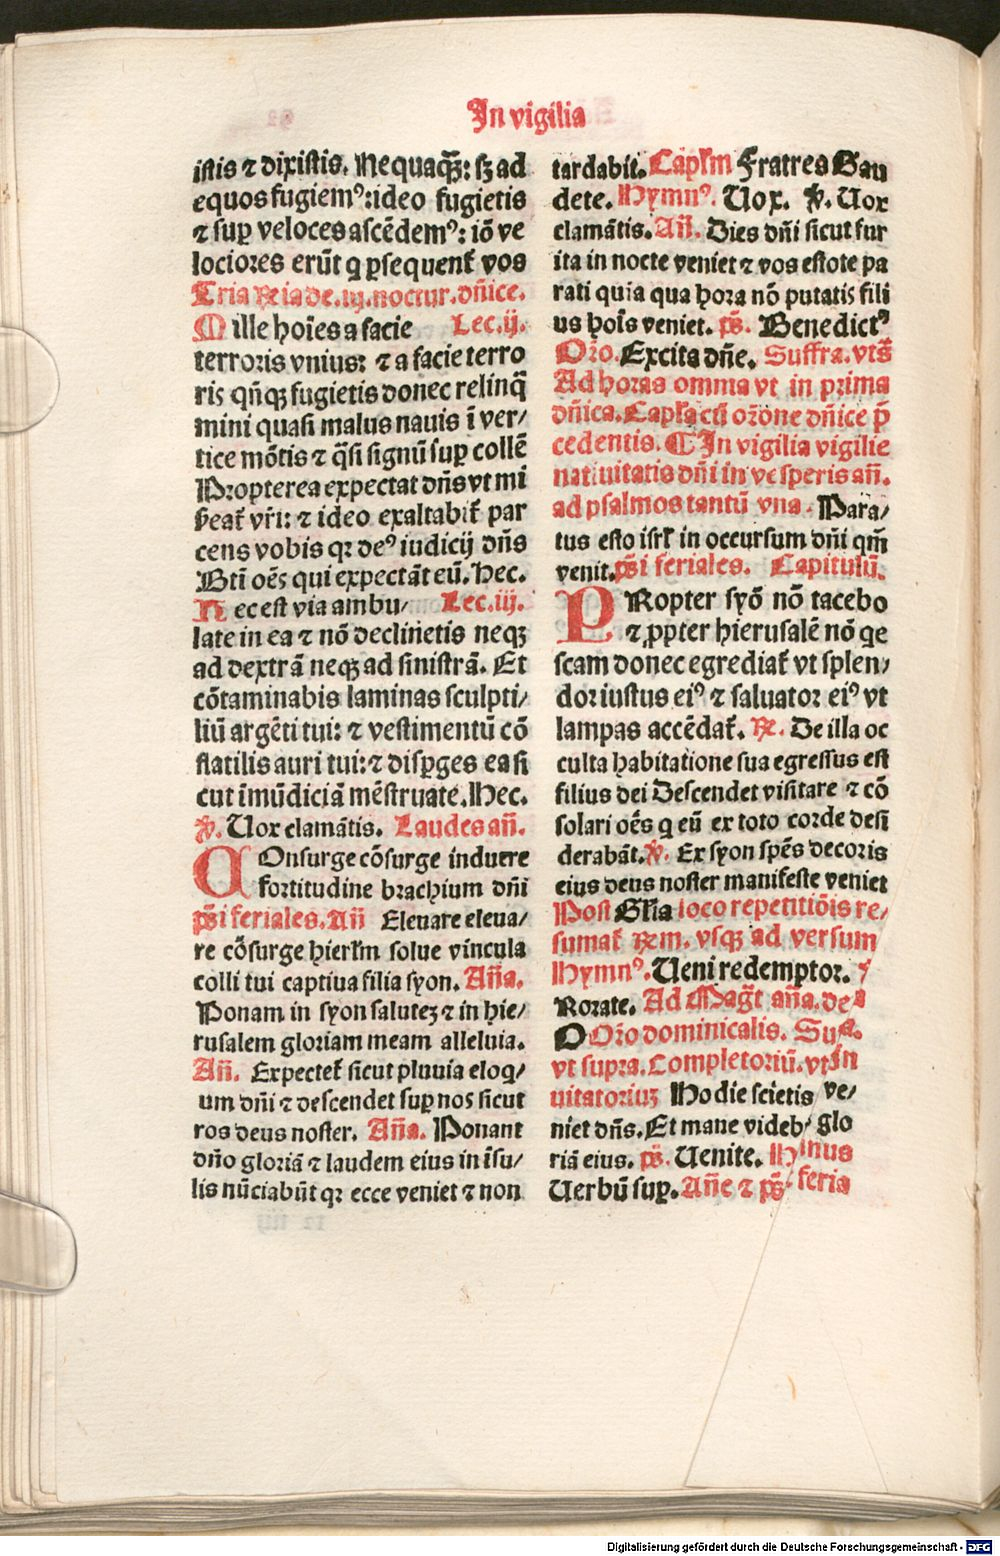 In vigilia
istis ⁊ dixistis. Nequaqȝ: sȝ ad
equos fugiemꝰ: ideo fugietis
⁊ suꝑ veloces ascēdemꝰ: iō ve
lociores erūt q ꝑsequent᷑ vos
Tria ℞ia de .iij. noctur. dn̄ice.
Mille hoīes a facie Lec. ij.
terroris vnius: ⁊ a facie terro
ris qn̄qȝ fugietis donec relinq̄
mini quasi malus nauis ī ver/
tice mōtis ⁊ q̄si signū suꝑ collē
Propterea expectat dn̄s vt mi
ẜeat᷑ vr̄i: ⁊ ideo exaltabit᷑ par
cens vobis qꝛ deꝰ iudicij dn̄s
Btī oēs qui expectāt eū. Hec.
Hec est via ambu/ Lec. iij.
late in ea ⁊ nō declinetis neqȝ
ad dextrā neqȝ ad sinistrā. Et
cōtaminabis laminas sculpti/
liū argēti tui: ⁊ vestimentū cō
flatilis auri tui: ⁊ disꝑges ea si
cut īmūdiciā mēstruate. Hec.
℣. Uox clamātis. Laudes an̄.
COnsurge cōsurge induere
fortitudine brachium dn̄i
ps̄i feriales. An̄ Eleuare eleua/
re cōsurge hierl̄m solue vincula
colli tui captiua filia syon. An̄a.
Ponam in syon salutez ⁊ in hie/
rusalem gloriam meam alleluia.
An̄. Expectet᷑ sicut pluuia eloq/
um dn̄i ⁊ descendet suꝑ nos sicut
ros deus noster. An̄a. Ponant
dn̄o gloriā ⁊ laudem eius in īsu/
lis nūciabūt qꝛ ecce veniet ⁊ non
tardabit. Capl̄m Fratres Gau
dete. Hymnꝰ. Uox. ℣. Uox
clamātis. An̄. Dies dn̄i sicut fur
ita in nocte veniet ⁊ vos estote pa
rati quia qua hora nō putatis fili
us hoīs veniet. ps̄. Benedictꝰ
Oro. Excita dn̄e. Suffra. vt s̄
Ad horas omnia vt in prima
dn̄ica. Capl̄a cū orōne dn̄ice p̄
cedentis. ¶ In vigilia vigilie
natiuitatis dn̄i in vesperis an̄.
ad psalmos tantū vna. Para/
tus esto isrl̄ in occursum dn̄i qm̄
venit. ps̄i feriales. Capitulū.
PRopter syō nō tacebo
⁊ ꝓpter hierusalē nō qe
scam donec egrediat᷑ vt splen/
dor iustus eiꝰ ⁊ saluator eiꝰ vt
lampas accēdat᷑. ℞. De illa oc
culta habitatione sua egressus est
filius dei Descendet visitare ⁊ cō
solari oēs q eū ex toto corde desi
derabāt. ℣. Ex syon spēs decoris
eius deus noster manifeste veniet
Post Gl̄ia loco repetitiōis re/
sumat᷑ ℞m. vsqȝ ad versum
Hymnꝰ. Ueni redemptor. ℣
Rorate. Ad Maḡt an̄a. de
O Oro dominicalis. Suffra.
vt supra. Completoriū. vt In
uitatoriuȝ Hodie scietis ve/
niet dn̄s. Et mane videb/ glo
riā eius. ps̄. Uenite.
Uerbū suꝑ. An̄e ⁊ ps̄. feria
Digitalisierung gefördert durch die Deutsche Forschungsgemeinschaft - DFG